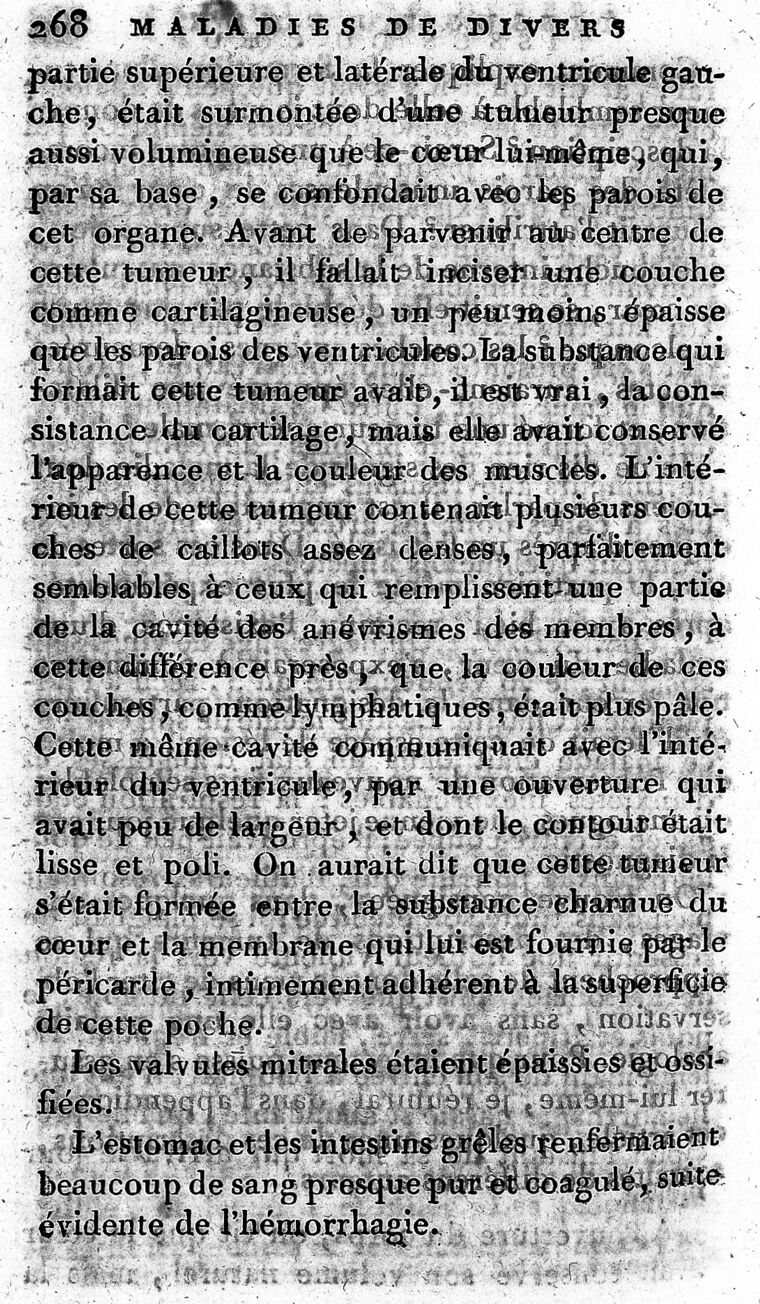 268 MALADIES DE DIVERS
partie supérieure et latérale du ventricule gau-
che, était surmontée d'une tumeur presque
aussi volumineuse que le cœur lui-même, qui,
par sa base, se confondait avec les parois de
cet organe. Avant de parvenir au centre de
cette tumeur, il fallait inciser une couche
comme cartilagineuse, un peu moins épaisse
que les parois des ventricules. La substance qui
formait cette tumeur avait, il est vrai, la con-
sistance du cartilage, mais elle avait conservé
l'apparence et la couleur des muscles. L'inté-
rieur de cette tumeur contenait plusieurs cou-
ches de caillots assez denses, parfaitement
semblables à ceux qui remplissent une partie
de la cavité des anévrismes des membres, à
cette différence près, que la couleur de ces
couches, comme lymphatiques, était plus pâle.
Cette même cavité communiquait avec l'inté-
rieur du ventricule, par une ouverture qui
avait peu de largeur, et dont le contour était
lisse et poli. On aurait dit que cette tumeur
s'était formée entre la substance charnue du
cœur et la membrane qui lui est fournie par le
péricarde, intimement adhérent à la superficie
de cette poche.
Les valvules mitrales étaient épaissies et ossi-
fiées.
L'estomac et les intestins grêles renfermaient
beaucoup de sang presque pur et coagulé, suite
évidente de l'hémorrhagie.